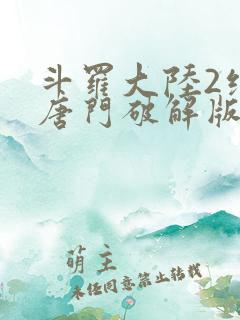 斗羅大陸2
唐門破解版
萌主
未经同意禁止转载